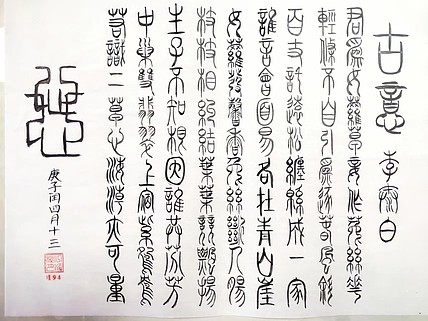 古意 李太白
君爲女蘿草妾作菟絲花
輕條不自引爲逐春風斜
百丈託遠松纏綿成一家
誰言會面易各在青山崖
女蘿發馨香菟絲斷人腸
枝枝相糾結葉葉競飄揚
生子不知根因誰共芬芳
中巢雙翡翠上宿紫鴛鴦
若識二草心海潮亦可量
庚子闰四月十三